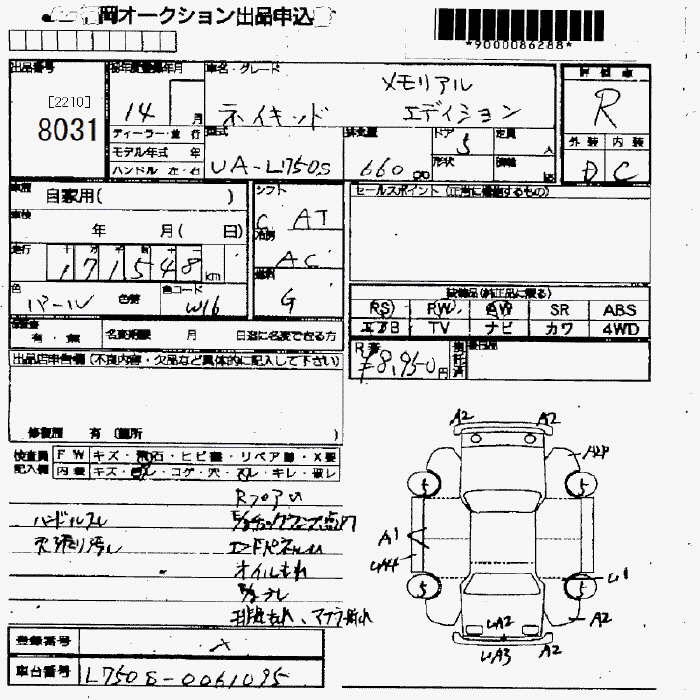 岡オークション出品申込
*9000086288*
出品番号
[2210]
8031
初年度登録年月
14 月
ディーラー・並行
モデル年式 年
ハンドル 左・右
車名・グレード
ネイキッド メモリアル エディション
型式
UA-L750S
排気量
660 cc
ドア
5
形状
定員
人
評価点
R
外装 内装
D C
車歴
自家用( )
車検
年 月( 日)
走行
171548 km
色
パール 色替
色コード
W16
シフト
AT
冷房
AC
燃料
G
セールスポイント (正常に機能するもの)
装備品(純正品に限る)
PS PW AW SR ABS
エアB TV ナビ カワ 4WD
R券
¥8,950円
預託済
後日品
有・無 名変期限 月 日迄に名変できる方
出品店申告欄(不良内容・欠品など具体的に記入して下さい)
修復歴 有 (箇所 )
検査員記入欄
FW キズ・飛石・ヒビ・リペア跡・X要
内装 キズ・コゲ・穴・スレ・キレ・破レ
ハンドルスレ
天張り汚レ
エンドパネル
オイルもれ
A2 A2
5 5
A1
5 5
U1
UA2
A2
UA3
A2
登録番号
車台番号
L750S-0061095